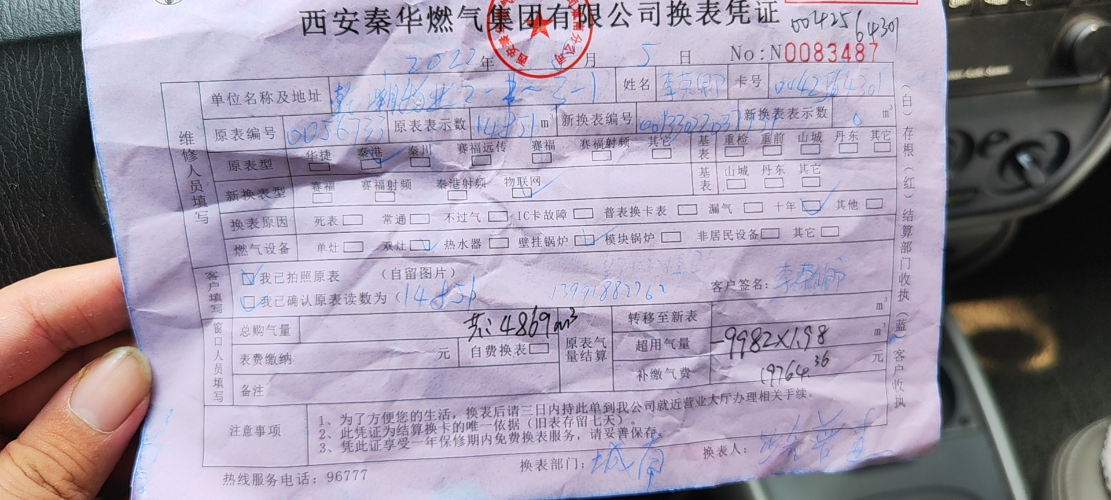 西安秦华燃气集团有限公司换表凭证
0042564301
2022年 月 5 日 No:N0083487
单位名称及地址 姓名 李荣卿 卡号
原表编号 原表表示数 14851 m³ 新换表编号 新换表表示数 0 m³
原表型 华捷 秦港 秦川 赛福远传 赛福 赛福射频 其它 基表 重检 重前 山城 丹东 其它
新换表型 赛福 赛福射频 秦港射频 物联网 基表 山城 丹东 其它
换表原因 死表 常通 不过气 IC卡故障 普表换卡表 漏气 十年 其他
燃气设备 单灶 双灶 热水器 壁挂锅炉 模块锅炉 非居民设备 其它
维修人员填写
我已拍照原表 (自留图片)
我已确认原表读数为(14851 13991882762 客户签名: 李荣卿
客户填写
总购气量 4869m³ 原表气量结算 转移至新表 m³
表费缴纳 元 自费换表 超用气量 9982×1.98 m³
备注 补缴气费 19764.36 元
窗口人员填写
注意事项
1、为了方便您的生活,换表后请三日内持此单到我公司就近营业大厅办理相关手续。
2、此凭证为结算换卡的唯一依据(旧表存留七天)。
3、凭此证享受一年保修期内免费换表服务,请妥善保存。
热线服务电话:96777 换表部门: 城南 换表人:
(白)存根(红)结算部门收执(蓝)客户收执